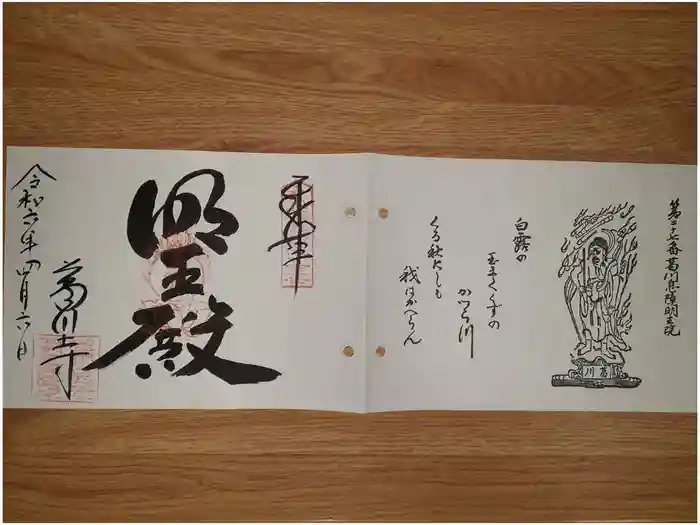 第二十七番葛川息障明王院
白露の
玉まくくずの
かつら川
くる秋にしも
我はかへらん
葛川
奉拝
明王殿
葛川寺
令和六年四月六日